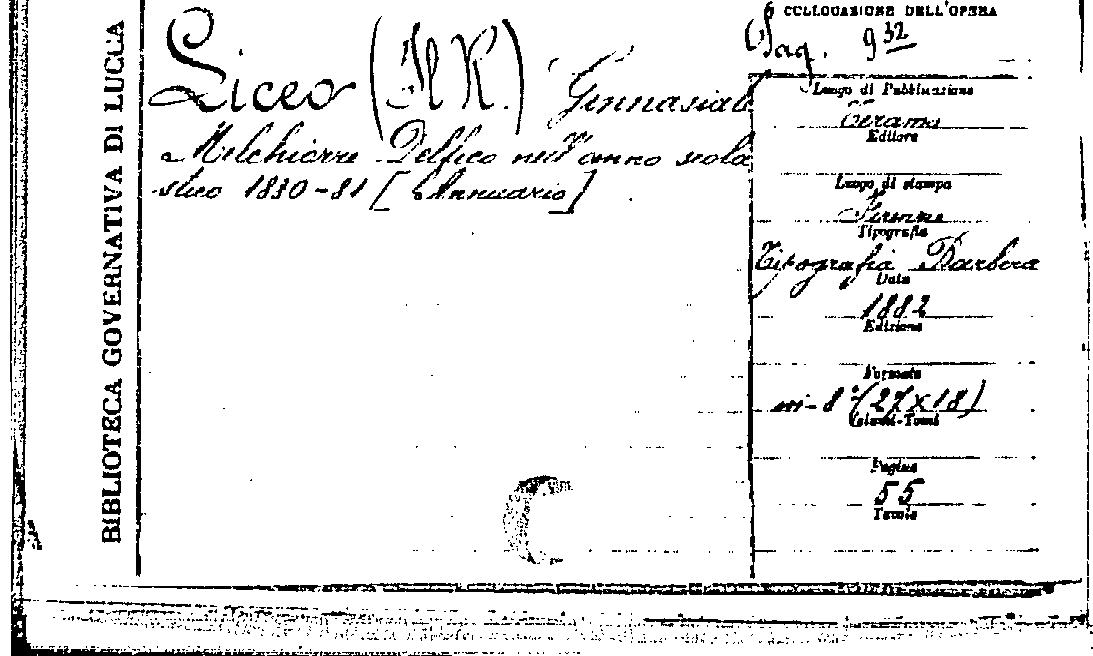 BIBLIOTECA GOVERNATIVA DI LUCCA
Liceo (Il R.) Ginnasiale
Melchiorre Delfico nell'anno scola
stico 1880-81 [Annuario]
COLLOCAZIONE DELL'OPERA
6
Pag. 9 32
Luogo di Pubblicazione
Teramo
Editore
Luogo di stampa
Firenze
Tipografia
Tipografia Barbera
Data
1882
Edizione
Formato
in-8° (27x18)
Volumi-Tomi
Pagine
55
Tavole